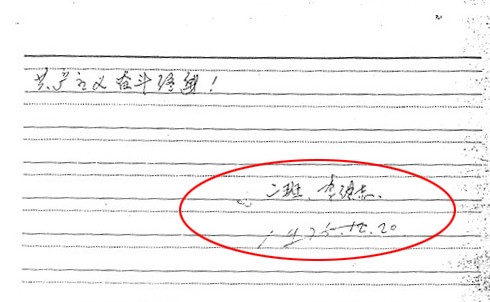 共产主义奋斗终身！
二班. 李志.
1975.12.20